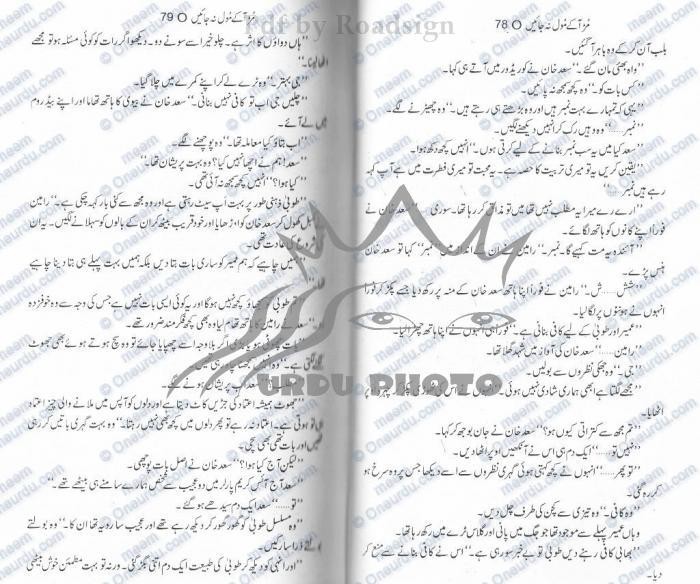 78 O مُڑ آکے مُول نہ جائیں
بلب آن کرکے وہ باہر آ گئیں۔
"واہ بھئی مان گئے۔" سعد خان نے کوریڈور میں آتے ہی کہا۔
"کس بات کو۔" وہ کچھ سمجھ نہ پائیں۔
"یہی کہ تمہارے بہت نمبر ہیں اور وہ بڑھتے ہی رہتے ہیں۔" وہ چھیڑنے لگے۔
"نمبر......" وہ وہیں رک کر انہیں دیکھنے لگیں۔
"سعد کیا میں یہ سب نمبر بنانے کے لیے کرتی ہوں۔" انہیں کچھ دکھ ہوا۔
"یقین کریں یہ تو میری تربیت کا حصہ ہے۔ یہ محبت تو میری فطرت میں ہے آپ کہہ
رہے ہیں نمبر......"
"ارے رے میرا یہ مطلب نہیں تھا میں تو مذاق کر رہا تھا۔ سوری......" سعد خان نے
فوراً اپنے کانوں کو ہاتھ لگائے۔
"آئندہ یہ مت کہیے گا۔ نمبر۔" رامین نے ان کے انداز میں "نمبر" کہا تو سعد خان
ہنس پڑے۔
"شش...... ش۔" رامین نے فوراً اپنا ہاتھ سعد خان کے منہ پر رکھ دیا جسے پکڑ کر فوراً
انہوں نے ہونٹوں پر لگا لیا۔
"عمیر اور طوبیٰ کے لیے کافی بنانی ہے۔" فوراً ہی انہوں نے اپنا ہاتھ چھڑا لیا۔
"رامین......" سعد خان کی آواز میں شہد گھلا تھا۔
"جی......" وہ جھکی نظروں سے بولیں۔
"مجھے لگتا ہے ابھی ہماری شادی نہیں ہوئی۔" انہوں نے اس کی ٹھوڑی پکڑ کر چہرہ اوپر
اٹھایا۔
"تم مجھ سے کتراتی کیوں ہو؟" سعد خان نے جان بوجھ کر کہا۔
"نہیں تو......" ایک دم ہی اس نے آنکھیں اوپر اٹھا دیں۔
"تو پھر......" انہوں نے کچھ کہتی ہوئی گہری نظروں سے اسے دیکھا جس پر وہ سرخ ہو
کر رہ گئی۔
"وہ کافی۔" وہ تیزی سے کچن کی طرف چل دیں۔
وہاں عمیر پہلے سے موجود تھا جو جگ میں پانی اور گلاس ٹرے میں رکھ رہا تھا۔
"بھابی کافی رہنے دیں طوبیٰ تو بے خبر سو رہی ہے۔" اس نے کافی بنانے سے منع کر
دیا۔
79 O مُڑ آکے مُول نہ جائیں
"ہاں دواؤں کا اثر ہے۔ چلو خیر اسے سونے دو۔ دیکھو اگر رات کو کوئی مسئلہ ہو تو مجھے
اٹھا لینا۔"
"جی بہتر۔" وہ ٹرے لے کر اپنے کمرے میں چلا گیا۔
"چلیں جی اب تو کافی نہیں بنانی۔" سعد خان نے بیوی کا ہاتھ تھاما اور اپنے بیڈروم
میں لے آئے۔
"اب بتاؤ کیا معاملہ تھا۔" وہ پوچھنے لگے۔
"سعد! ہم نے اچھا نہیں کیا؟ وہ بہت پریشان تھا۔"
"کیا ہوا؟" انہیں کچھ سمجھ نہ آئی تھی۔
"طوبیٰ ذہنی طور پر بہت اپ سیٹ رہتی ہے اور وہ مجھ سے کئی بار کہہ چکی ہے۔" رامین
کھول کر سعد خان کو اوڑھایا اور خود قریب بیٹھ کر ان کے بالوں کو سہلانے لگیں۔ یہ ان
شروع کی عادت تھی۔
"ہمیں چاہیے کہ ہم عمیر کو ساری بات بتا دیں بلکہ ہمیں بہت پہلے ہی بتا دینا چاہیے
طوبیٰ کو سمجھاؤ کچھ نہیں ہوگا اور یہ کوئی ایسی بات نہیں ہے جس کی وجہ سے وہ خوفزدہ
سعد نے رامین کا ہاتھ تھام لیا وہ بھی کچھ فکر مند ضرور تھے۔
بات چھوٹی ہو یا بڑی اگر بلاوجہ اسے چھپایا جائے تو وہ سچ ہوتے ہوئے بھی جھوٹ
لگنے لگتی ہے۔"
سعد اب پریشان ہونے لگے۔
"جھوٹ ہمیشہ اعتماد کی جڑیں کاٹ دیتا ہے اور دلوں کو آپس میں ملانے والی چیز اعتماد
ہی تو ہوتی ہے۔ اعتماد نہ رہے تو پھر دلوں میں کچھ بھی نہیں رہتا۔" وہ بہت گہری باتیں کر رہی
تھیں اور بات تھی بھی سچی۔
"لیکن آج کیا ہوا؟" سعد خان نے اصل بات پوچھی۔
"سعد آج آئس کریم پارلر میں دو عجیب سے شخص ہمارے سامنے ہی بیٹھے تھے۔"
"تو......" سعد ایک دم سیدھے ہو گئے۔
"وہ مسلسل طوبیٰ کو گھور گھور کر دیکھ رہے تھے اور عجیب سا رویہ تھا ان کا۔" وہ بولتے
بولتے ذرا سا رکیں۔
"اور انہی کو دیکھ کر طوبیٰ کی طبیعت ایک دم اتنی بگڑ گئی۔ ورنہ تو بہت مطمئن خوش بیٹھی
pdf by Roadsign
URDU PHOTO
Oneurdu.com